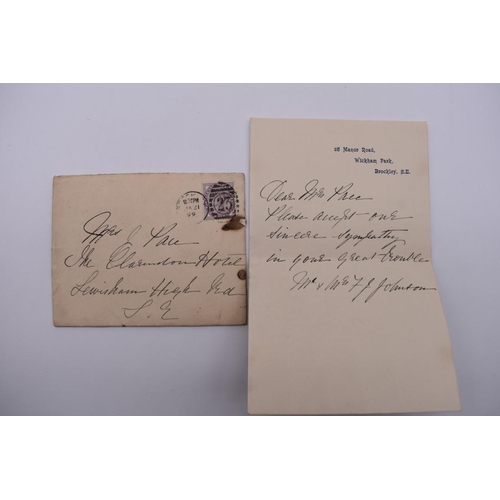 Mrs Pace
The Clarendon Hotel
Lewisham High Rd
S.E
Manor Road,
Wickham Park,
Brockley. S.E.
Dear Mrs Pace
Please accept our
sincere sympathy
in your great trouble
Mr & Mrs F J Johnson